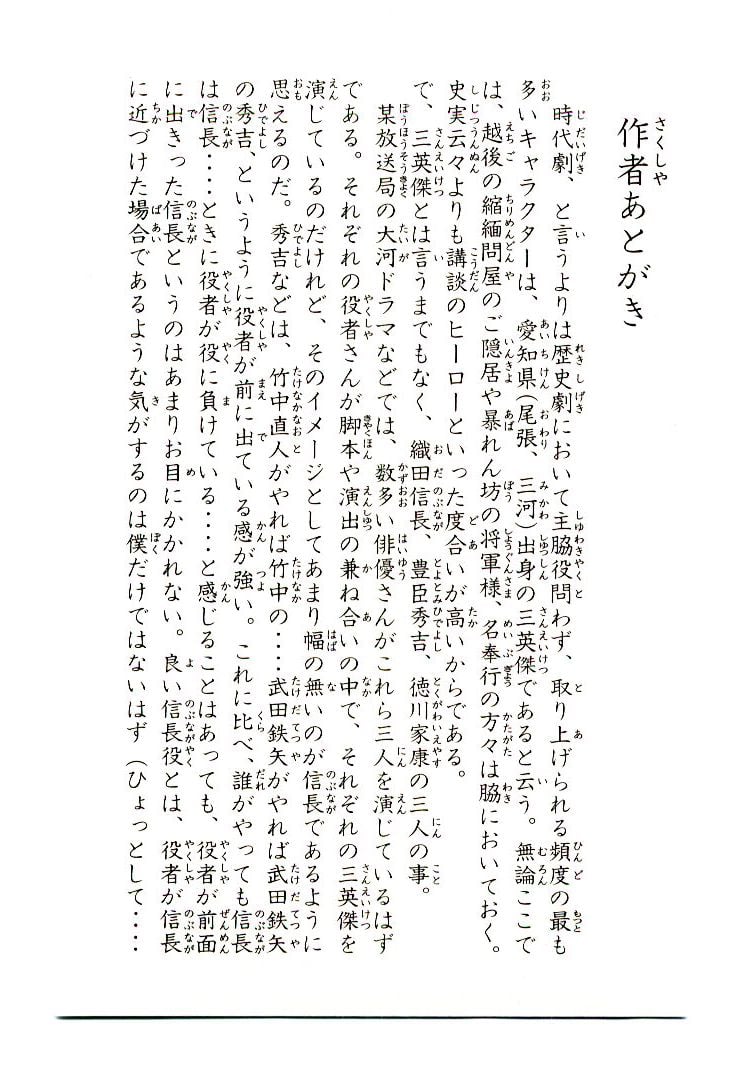 作者あとがき
時代劇、と言うよりは歴史劇において主脇役問わず、取り上げられる頻度の最も
多いキャラクターは、愛知県(尾張、三河)出身の三英傑であると云う。無論ここで
は、越後の縮緬問屋のご隠居や暴れん坊の将軍様、名奉行の方々は脇においておく。
史実云々よりも講談のヒーローといった度合いが高いからである。
で、三英傑とは言うまでもなく、織田信長、豊臣秀吉、徳川家康の三人の事。
某放送局の大河ドラマなどでは、数多い俳優さんがこれら三人を演じているはず
である。それぞれの役者さんが脚本や演出の兼ね合いの中で、それぞれの三英傑を
演じているのだけれど、そのイメージとしてあまり幅の無いのが信長であるように
思えるのだ。秀吉などは、竹中直人がやれば竹中の‥‥武田鉄矢がやれば武田鉄矢
の秀吉、というように役者が前に出ている感が強い。これに比べ、誰がやっても信長
は信長‥‥ときに役者が役に負けている‥‥と感じることはあっても、役者が前面
に出きった信長というのはあまりお目にかかれない。良い信長役とは、役者が信長
に近づけた場合であるような気がするのは僕だけではないはず(ひょっとして‥‥